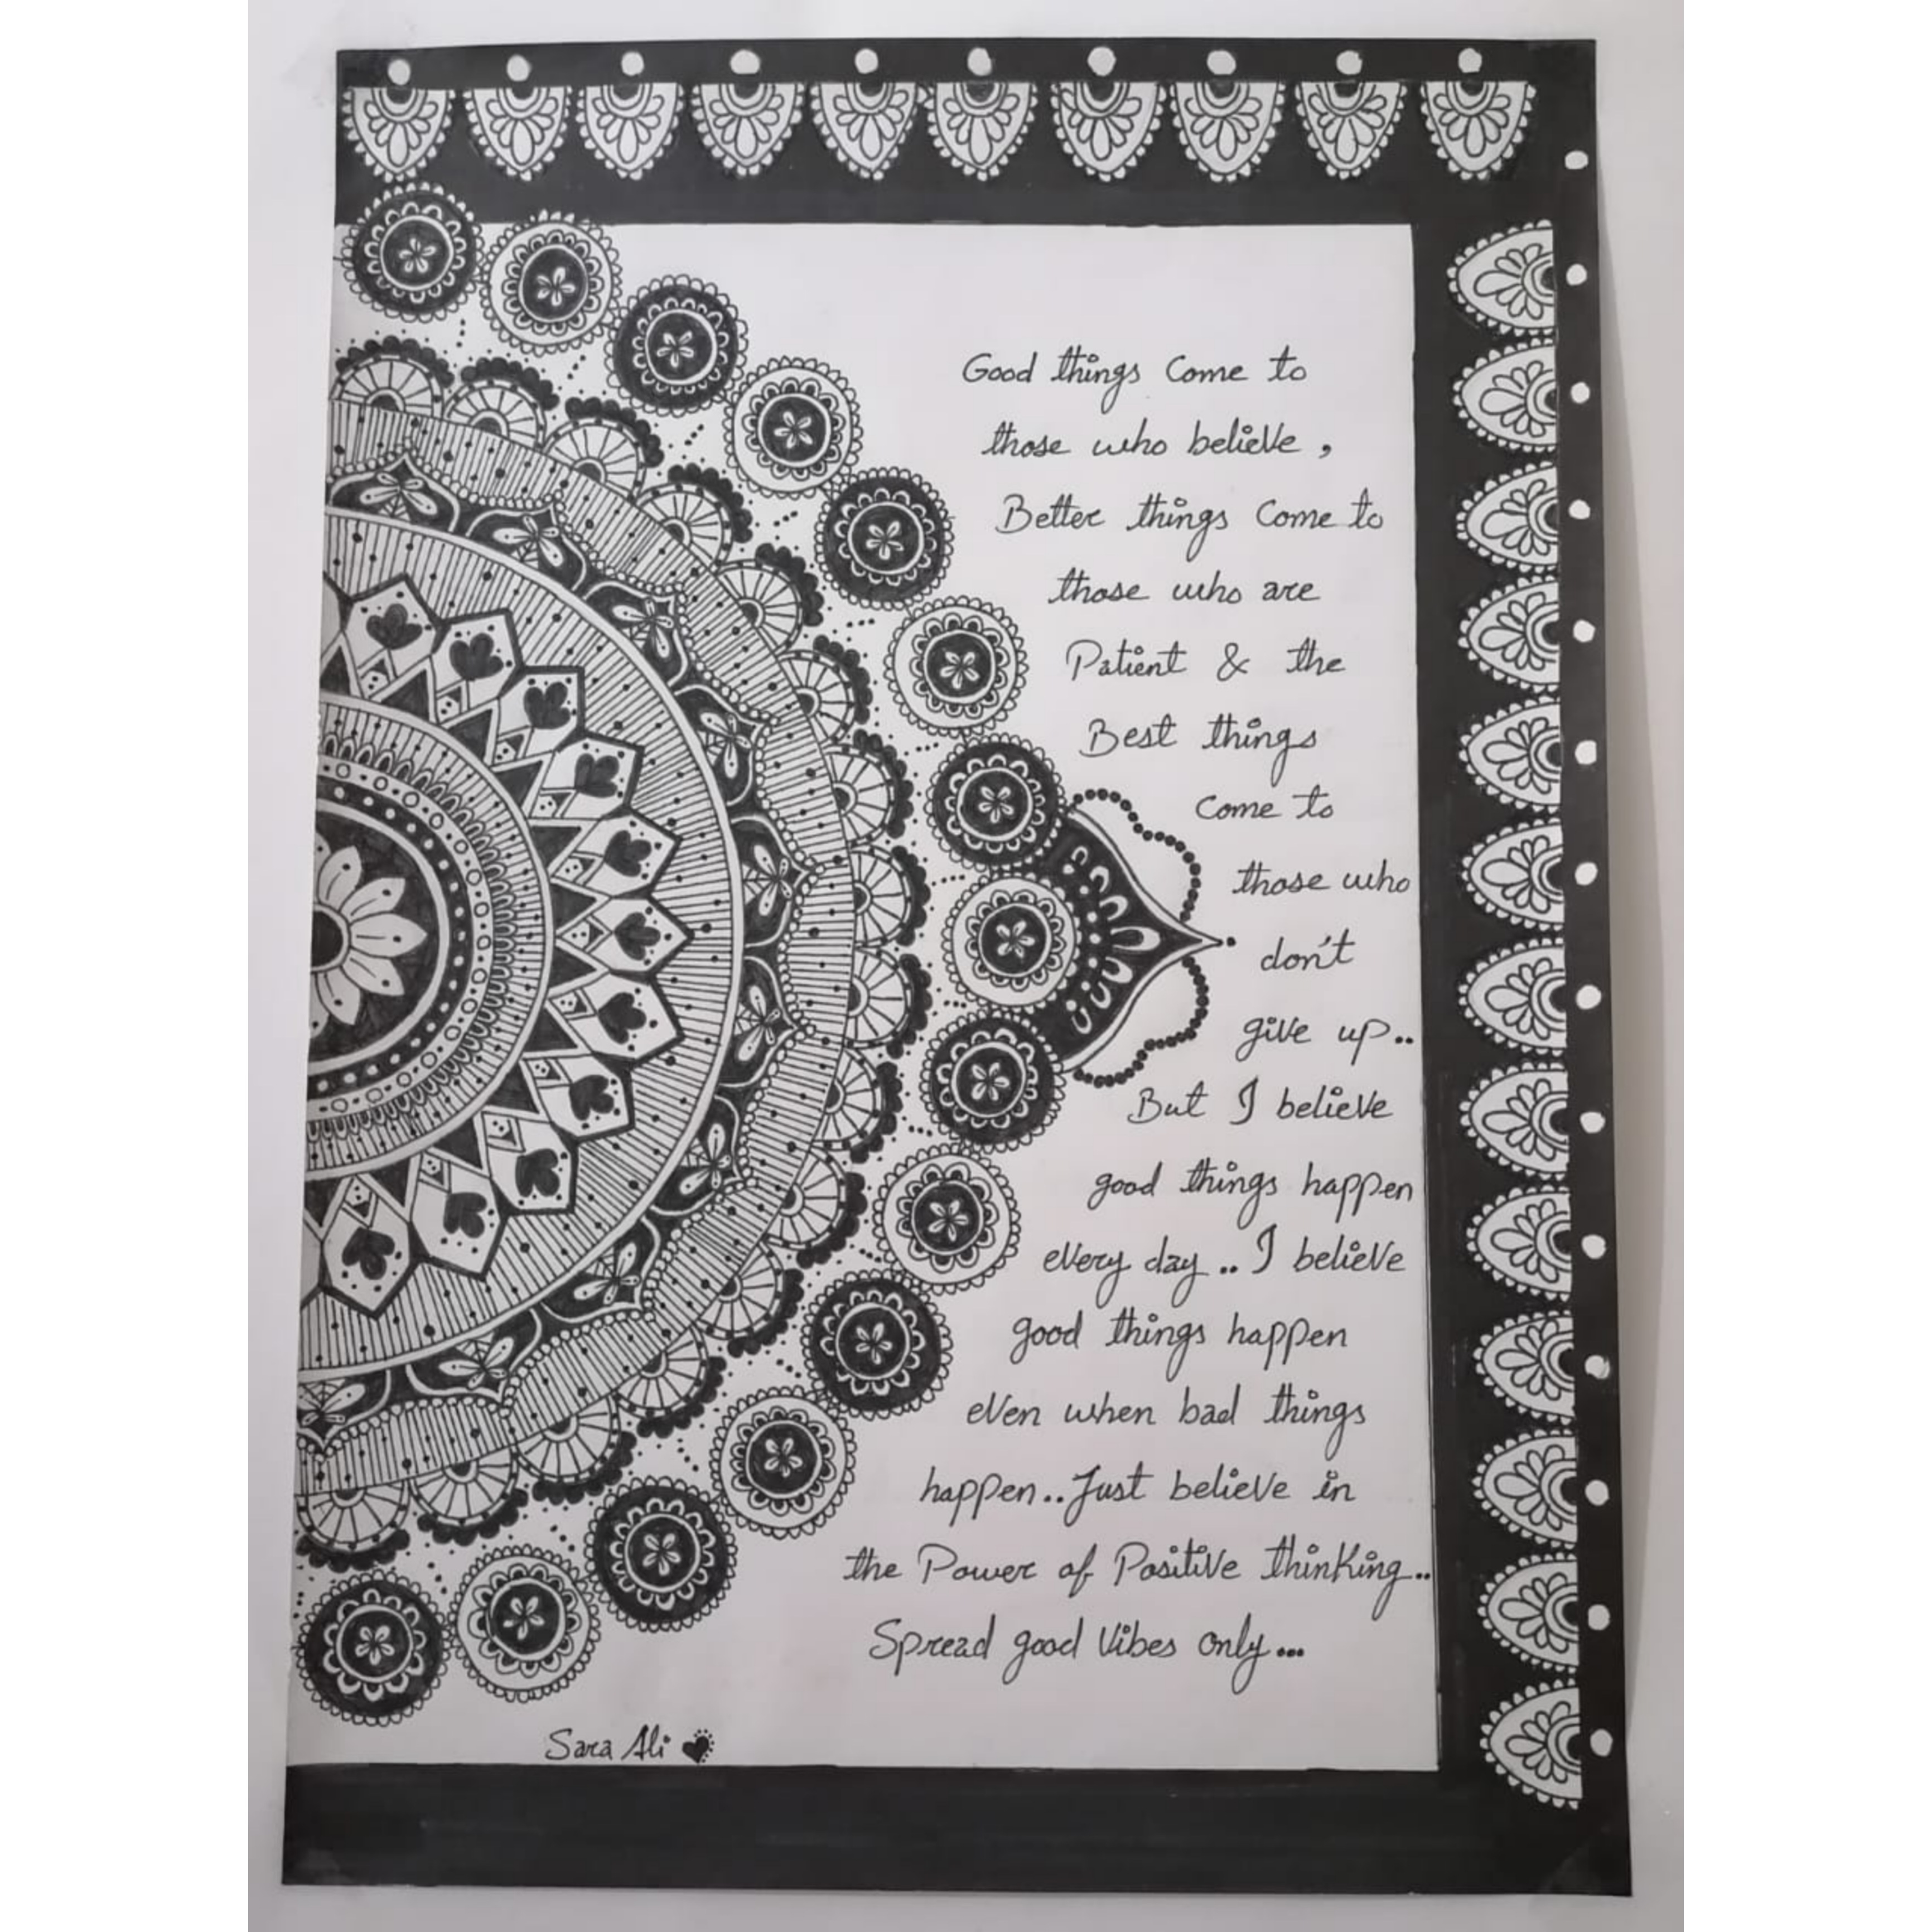 Good things Come to
those who believe,
Better things Come to
those who are
Patient & the
Best things
Come to
those who
don't
give up..
But I believe
good things happen
every day.. I believe
good things happen
even when bad things
happen.. Just believe in
the Power of Positive thinking..
Spread good Vibes only...
Sara Ali